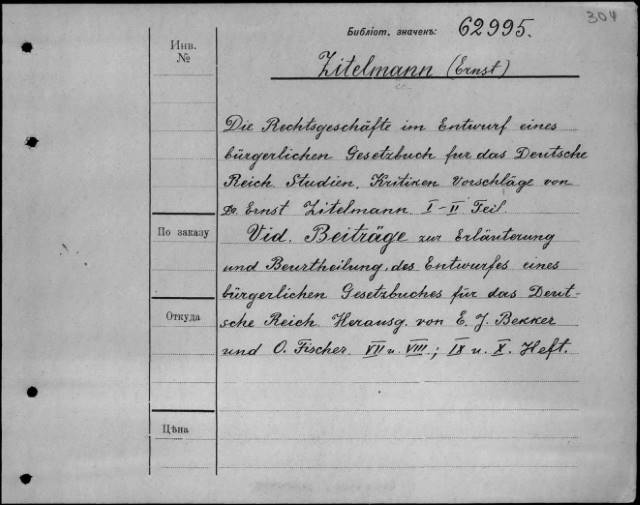 304
Библіот. значекъ: 62995.
Инв.
№
Zitelmann (Ernst)
Die Rechtsgeschäfte im Entwurf eines
bürgerlichen Gesetzbuch fur das Deutsche
Reich Studien, Kritiken Vorschläge von
Dr. Ernst Zitelmann I–II Teil.
По заказу
Vid. Beiträge zur Erläuterung
und Beurtheilung, des Entwurfes eines
bürgerlichen Gesetzbuches für das Deut-
Откуда
sche Reich Herausg. von E. J. Bekker
und O. Fischer. VII u. VIII; IX u. X. Heft.
Цѣна